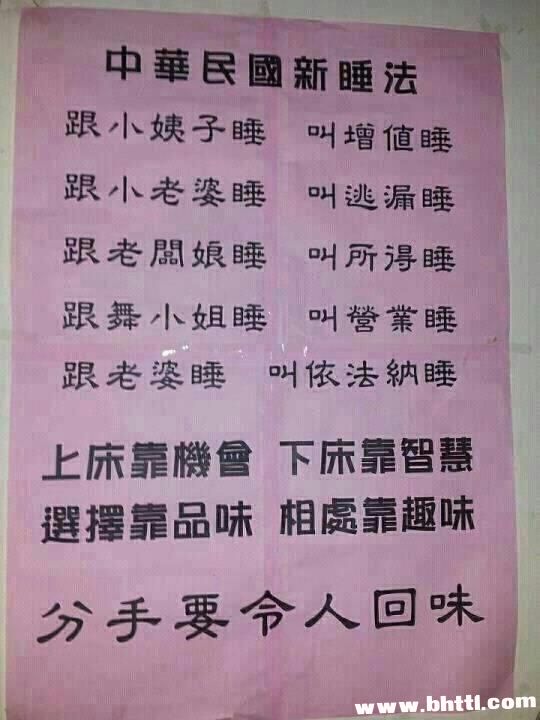 中華民國新睡法
跟小姨子睡 叫增值睡
跟小老婆睡 叫逃漏睡
跟老闆娘睡 叫所得睡
跟舞小姐睡 叫營業睡
跟老婆睡 叫依法納睡
上床靠機會 下床靠智慧
選擇靠品味 相處靠趣味
分手要令人回味
www.bhttl.com